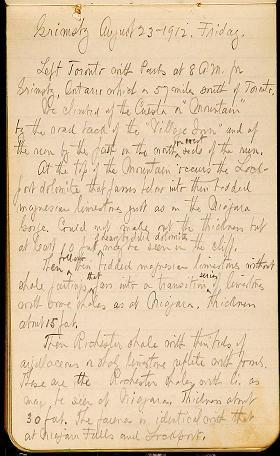 Grimsby August 23-1912. Friday.
Left Toronto with Parks at 8 A.M. for
Grimsby, Ontario which is 57 miles south of Toronto.
We climbed up the Cuesta or "Mountain"
by the road back of the "Village Inn" and up
the ravine by the path on the north west side of the ravine.
At the top of the Mountain occurs the Lock-
port dolomite that passes below into thin bedded
magnesian limestone just as in the Niagara
Gorge. Could not make out the thickness but
at least 60 feet may be seen in the cliff.
Then follows thin bedded magnesian limestone without
shale partings that pass into a transition series of limestones
with some shales as at Niagara. Thickness
about 15 feet.
Then Rochester shale with thin beds of
argillaceous limestone replete with forms.
These are the Rochester shales with
may be seen at Niagara. Thickness about
30 feet. The fauna is identical with that
at Niagara Falls and Lockport.